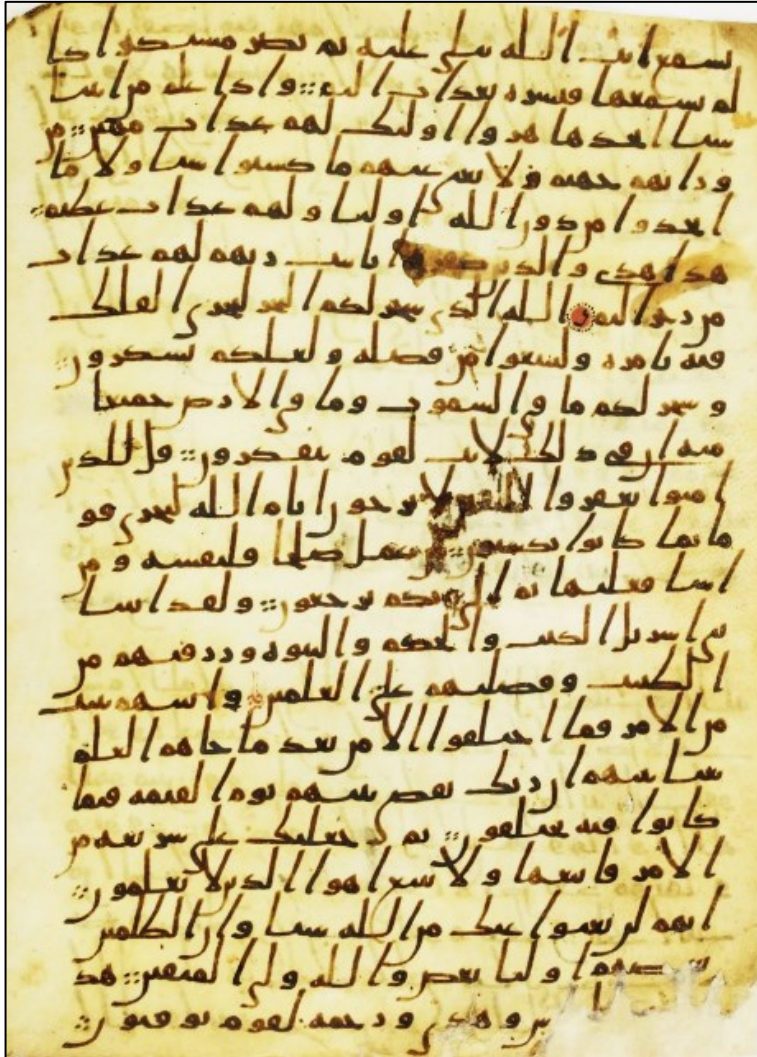 يسمع ايت الله تتلى عليه ثم يصر مستكبرا كا
لم يسمعها فبشره بعذاب اليم :: واذا علم من ايتنا
شيا اتخذها هزوا اوليك لهم عذاب مهين :: من
ورايهم جهنم ولا يغني عنهم ما كسبوا شيا ولا ما
اتخذوا من دون الله اوليا ولهم عذاب عظيم ::
هذا هدى والذين كفروا بايت ربهم لهم عذاب
من رجز اليم الله الذي سخر لكم البحر لتجري الفلك
فيه بامره ولتبتغوا من فضله ولعلكم تشكرون ::
وسخر لكم ما في السموت وما في الارض جميعا
منه ان في ذلك لايت لقوم يتفكرون :: قل للذين
امنوا يغفروا للذين لا يرجون ايام الله ليجزي قو
ما بما كانوا يكسبون :: من عمل صلحا فلنفسه ومن
اسا فعليها ثم الى ربكم ترجعون :: ولقد اتينا
بني اسريل الكتب والحكم والنبوه ورزقنهم من
الطيبت وفضلنهم على العلمين واتينهم بينت
من الامر فما اختلفوا الا من بعد ما جاهم العلم
بغيا بينهم ان ربك يقضي بينهم يوم القيمه فيما
كانوا فيه يختلفون :: ثم جعلنك على شريعه من
الامر فاتبعها ولا تتبع اهوا الذين لا يعلمون ::
انهم لن يغنوا عنك من الله شيا وان الظلمين
بعضهم اوليا بعض والله ولي المتقين :: هذ
وهدى ورحمه لقوم يوقنون ::